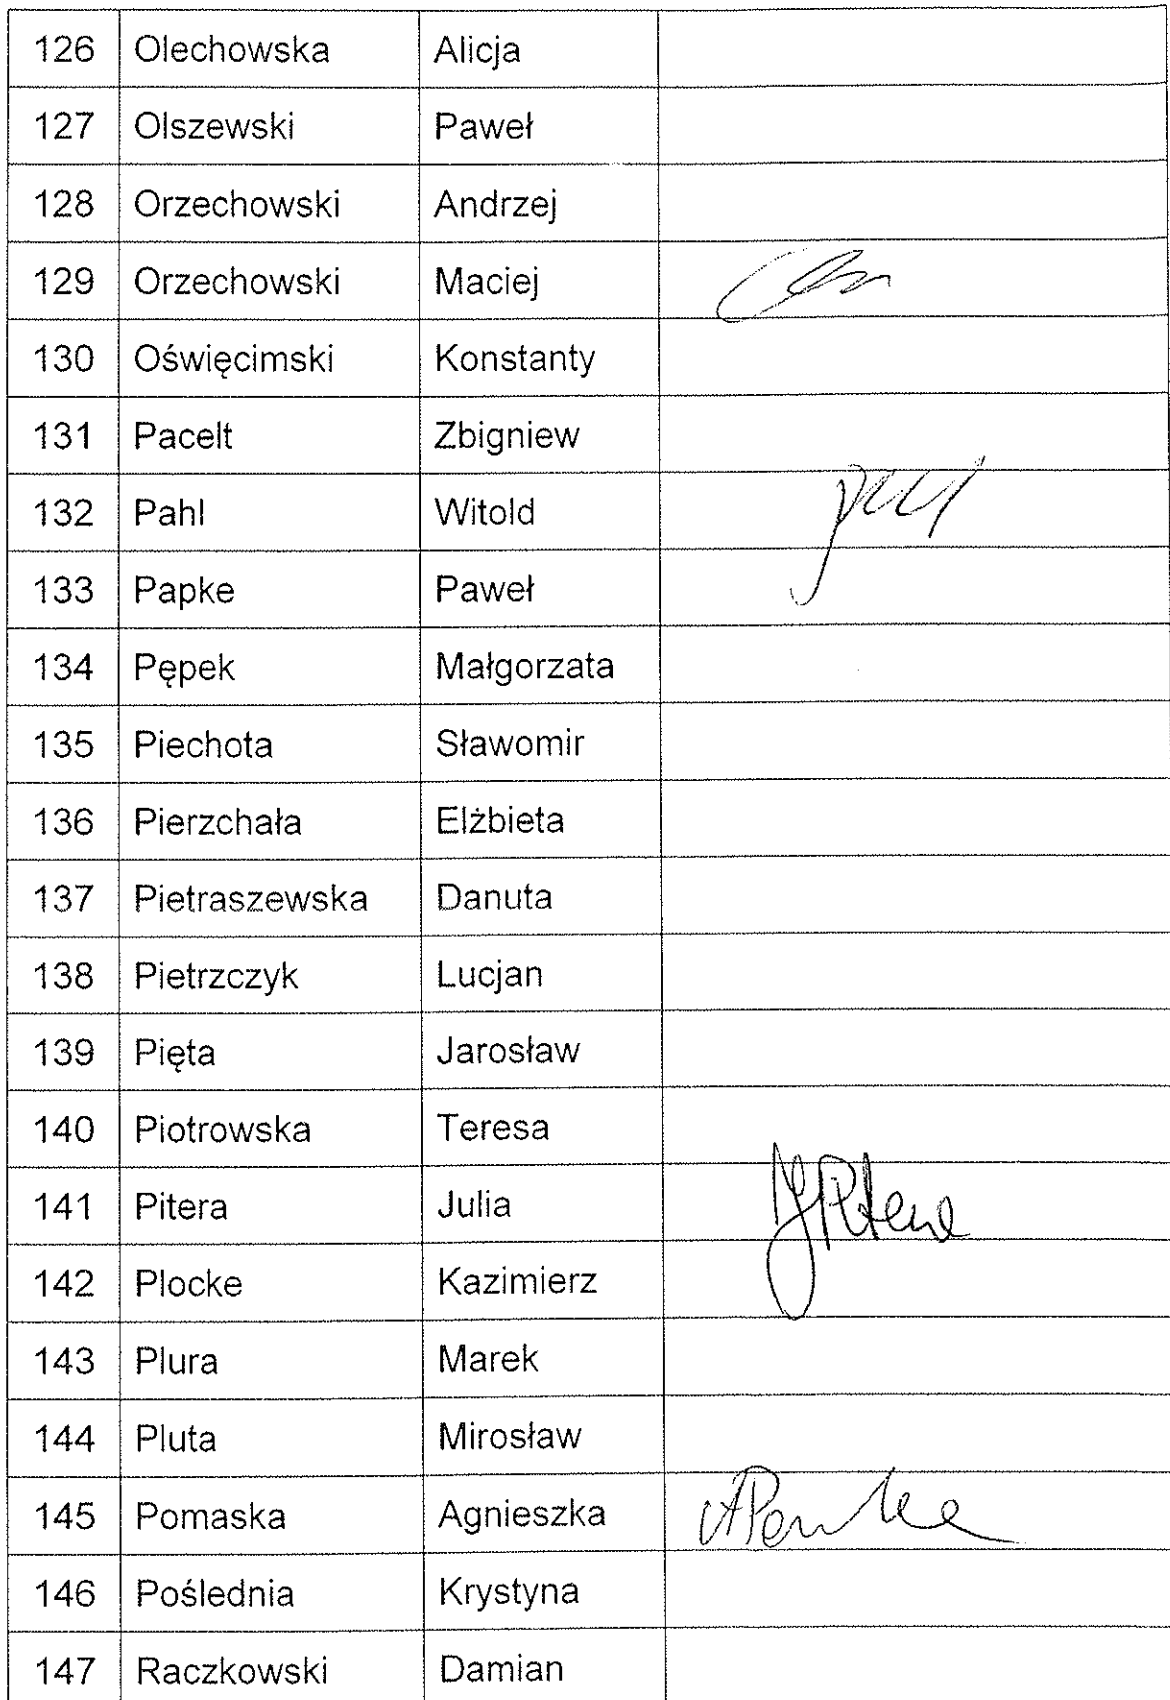 126 Olechowska Alicja
127 Olszewski Paweł
128 Orzechowski Andrzej
129 Orzechowski Maciej
130 Oświęcimski Konstanty
131 Pacelt Zbigniew
132 Pahl Witold
133 Papke Paweł
134 Pępek Małgorzata
135 Piechota Sławomir
136 Pierzchała Elżbieta
137 Pietraszewska Danuta
138 Pietrzczyk Lucjan
139 Pięta Jarosław
140 Piotrowska Teresa
141 Pitera Julia JPitera
142 Plocke Kazimierz
143 Plura Marek
144 Pluta Mirosław
145 Pomaska Agnieszka
146 Poślednia Krystyna
147 Raczkowski Damian